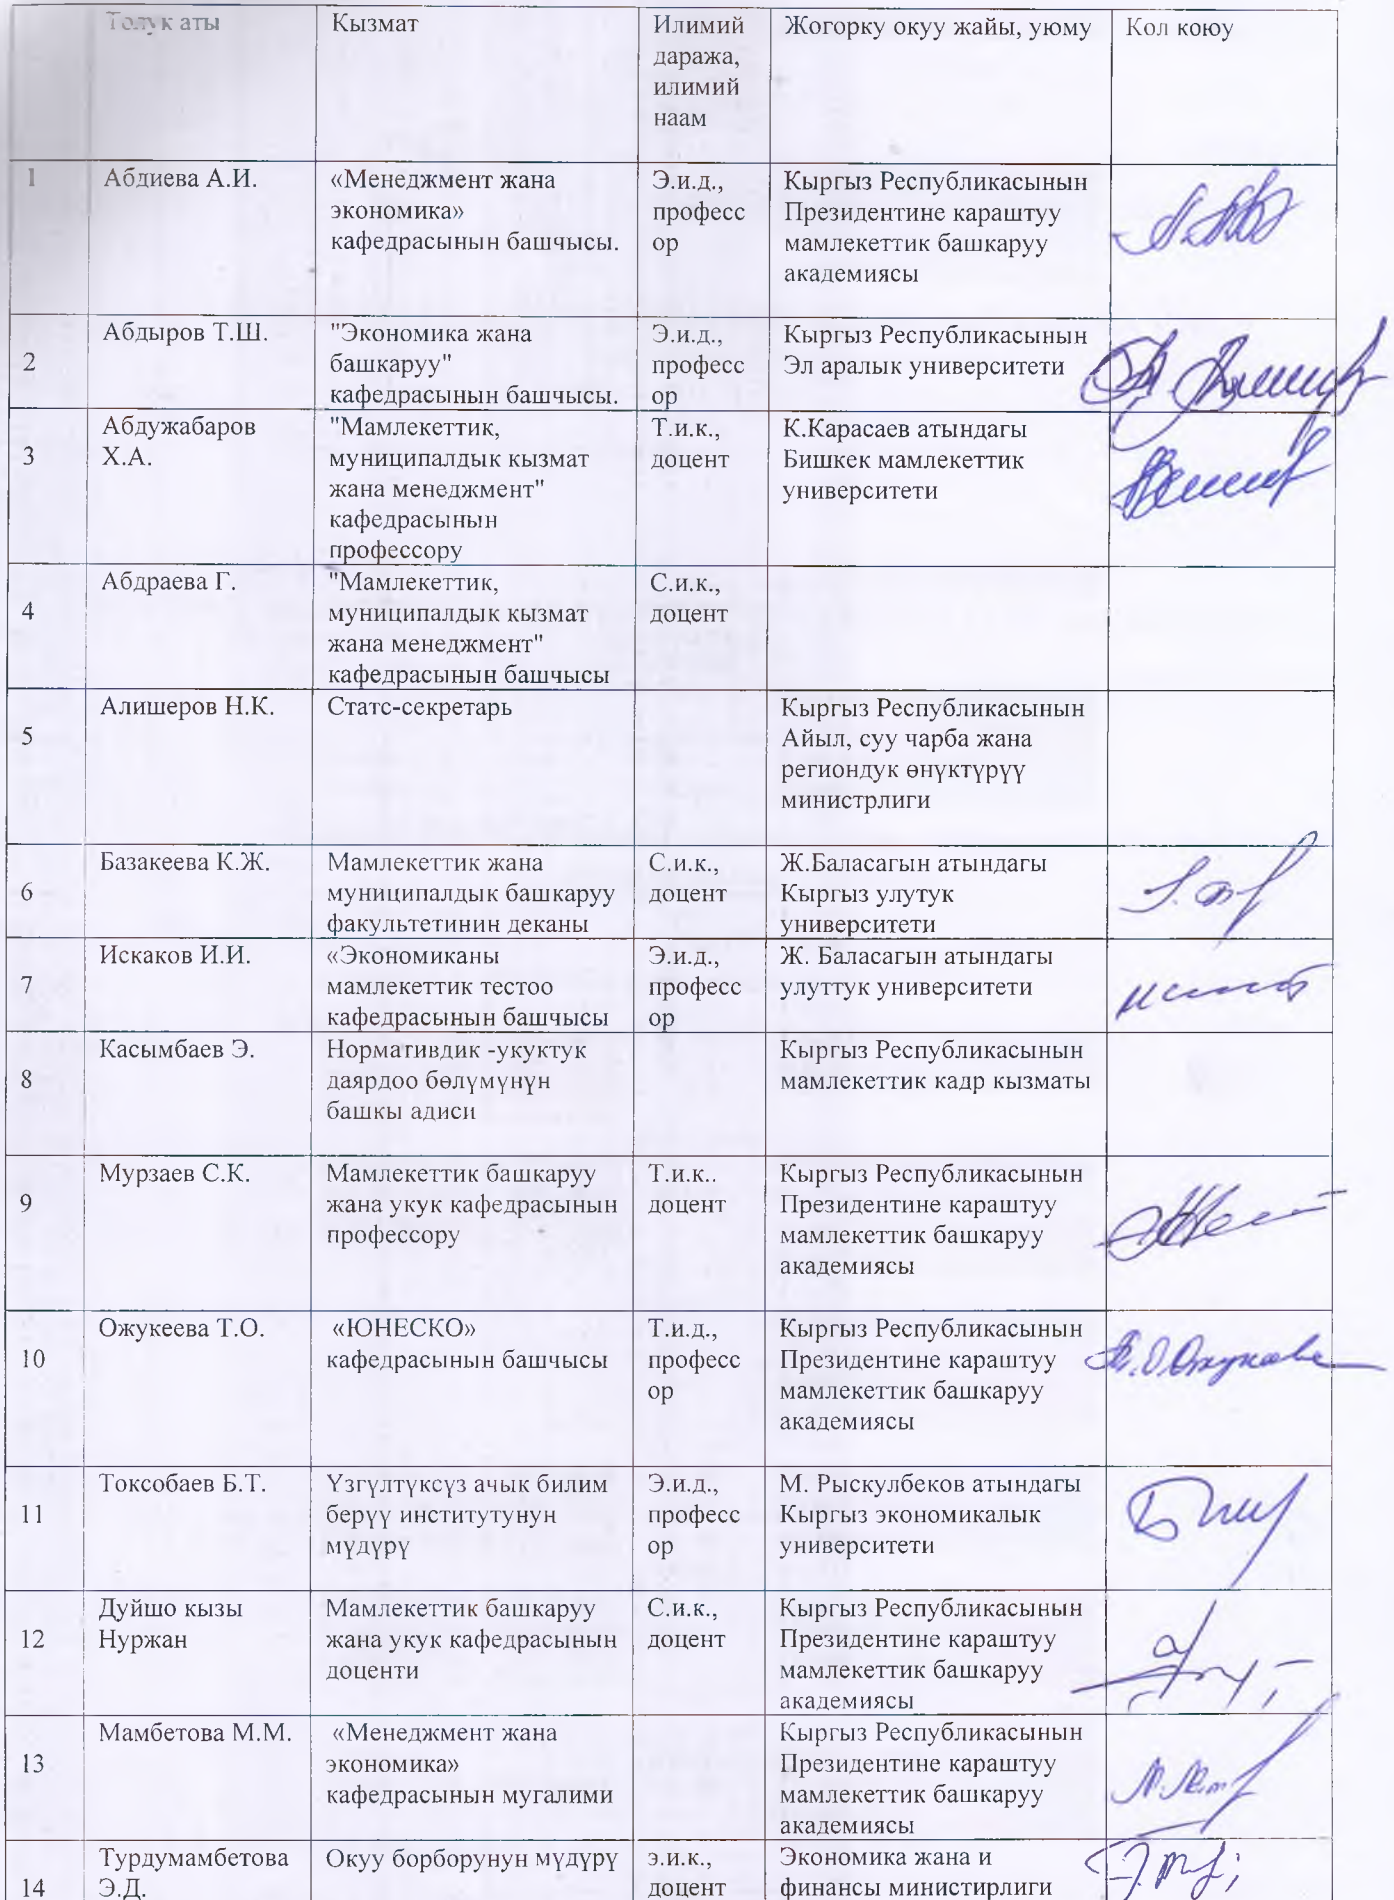 Толук аты
Кызмат
Илимий
даража,
илимий
наам
Жогорку окуу жайы, уюму
Кол коюу
1
Абдиева А.И.
«Менеджмент жана
экономика»
кафедрасынын башчысы.
Э.и.д.,
професс
ор
Кыргыз Республикасынын
Президентине караштуу
мамлекеттик башкаруу
академиясы
2
Абдыров Т.Ш.
"Экономика жана
башкаруу"
кафедрасынын башчысы.
Э.и.д.,
професс
ор
Кыргыз Республикасынын
Эл аралык университети
3
Абдужабаров
Х.А.
"Мамлекеттик,
муниципалдык кызмат
жана менеджмент"
кафедрасынын
профессору
Т.и.к.,
доцент
К.Карасаев атындагы
Бишкек мамлекеттик
университети
4
Абдраева Г.
"Мамлекеттик,
муниципалдык кызмат
жана менеджмент"
кафедрасынын башчысы
С.и.к.,
доцент
5
Алишеров Н.К.
Статс-секретарь
Кыргыз Республикасынын
Айыл, суу чарба жана
региондук өнүктүрүү
министрлиги
6
Базакеева К.Ж.
Мамлекеттик жана
муниципалдык башкаруу
факультетинин деканы
С.и.к.,
доцент
Ж.Баласагын атындагы
Кыргыз улутук
университети
7
Искаков И.И.
«Экономиканы
мамлекеттик тестоо
кафедрасынын башчысы
Э.и.д.,
професс
ор
Ж. Баласагын атындагы
улуттук университети
8
Касымбаев Э.
Нормативдик -укуктук
даярдоо бөлүмүнүн
башкы адиси
Кыргыз Республикасынын
мамлекеттик кадр кызматы
9
Мурзаев С.К.
Мамлекеттик башкаруу
жана укук кафедрасынын
профессору
Т.и.к..
доцент
Кыргыз Республикасынын
Президентине караштуу
мамлекеттик башкаруу
академиясы
10
Ожукеева Т.О.
«ЮНЕСКО»
кафедрасынын башчысы
Т.и.д.,
професс
ор
Кыргыз Республикасынын
Президентине караштуу
мамлекеттик башкаруу
академиясы
11
Токсобаев Б.Т.
Үзгүлтүксүз ачык билим
берүү институтунун
мүдүрү
Э.и.д.,
професс
ор
М. Рыскулбеков атындагы
Кыргыз экономикалык
университети
12
Дуйшо кызы
Нуржан
Мамлекеттик башкаруу
жана укук кафедрасынын
доценти
С.и.к.,
доцент
Кыргыз Республикасынын
Президентине караштуу
мамлекеттик башкаруу
академиясы
13
Мамбетова М.М.
«Менеджмент жана
экономика»
кафедрасынын мугалими
Кыргыз Республикасынын
Президентине караштуу
мамлекеттик башкаруу
академиясы
14
Турдумамбетова
Э.Д.
Окуу борборунун мүдүрү
э.и.к.,
доцент
Экономика жана и
финансы министирлиги